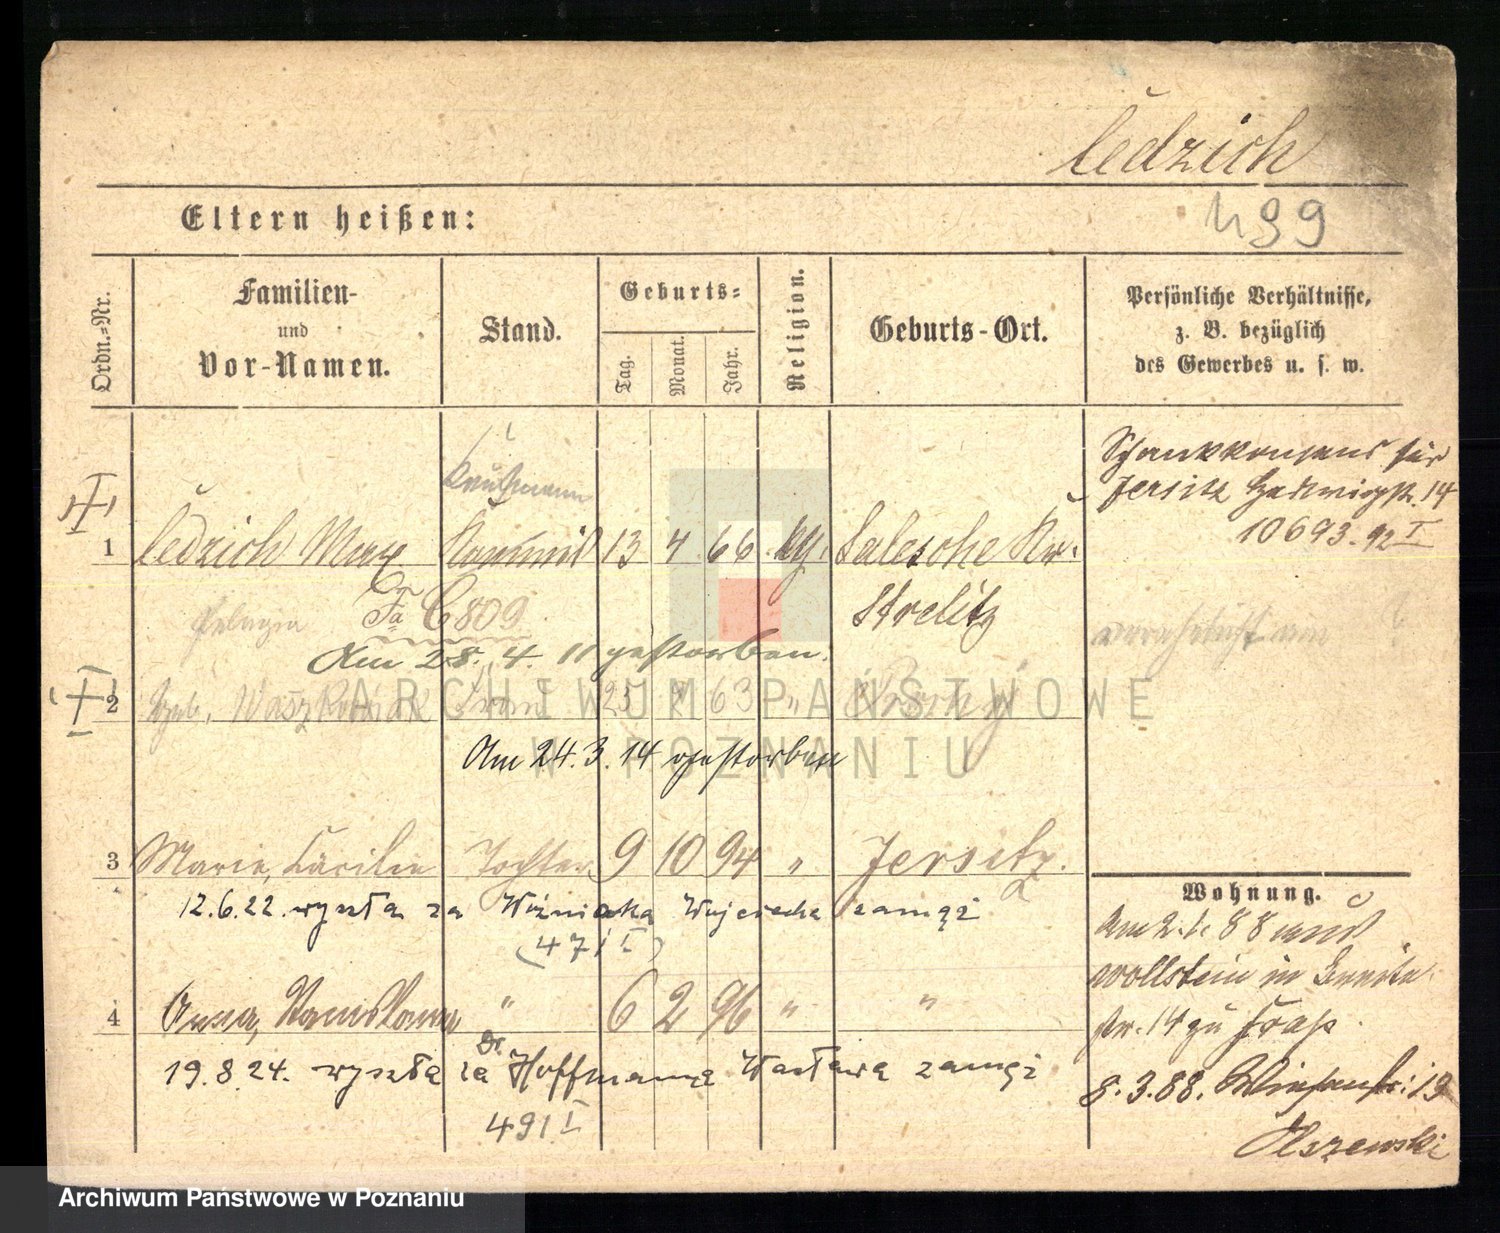 Cedzich
499
Eltern heißen:
Ordn.-Nr.
Familien-
und
Vor-Namen.
Stand.
Geburts-
Tag.
Monat.
Jahr.
Religion.
Geburts-Ort.
Persönliche Verhältnisse,
z. B. bezüglich
des Gewerbes u. s. w.
Kaufmann
1 Cedzich Max 13 4 66 Salesche Kr.
Strelitz
Schankkonsens für
Jersitz Hedwigstr. 14
10693. 92 I
Pelagia
Fa C 809
Am 28. 4. 11 gestorben.
verehelicht am
2 geb. Waszkowiak Frau 25 63 "
Am 24. 3. 14 gestorben
3 Marie, Cäcilie Tochter 9 10 94 " Jersitz.
12.6.22. wyszła za Woźniaka Wojciecha zamąż
(471 I)
4 Anna, Stanislawa " 6 2 96 " "
19.8.24. wyszła za Dr. Hoffmanna Wacława zamąż
491 I
Wohnung.
Am 2. 1. 88 aus
Wollstein in Breite-
str. 14 zu
8. 3. 88. 19
Olszewski
ARCHIWUM PAŃSTWOWE
W POZNANIU
Archiwum Państwowe w Poznaniu